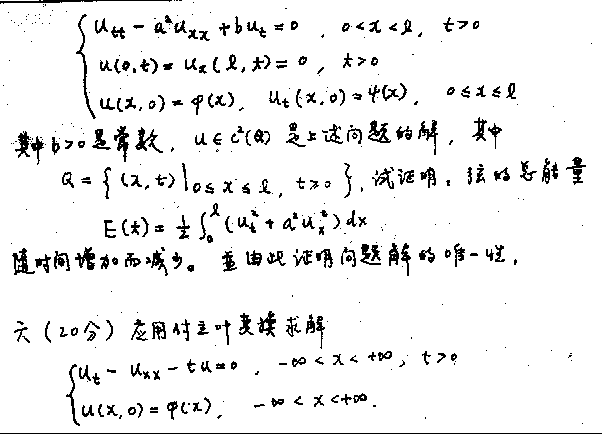 u_tt - a²u_xx + bu_t = 0, 0<x<l, t>0
u(0,t) = u_x(l,t) = 0, t>0
u(x,0) = φ(x), u_t(x,0) = ψ(x), 0≤x≤l
其中 b>0 是常数, u∈C²(Q) 是上述问题的解, 其中
Q = {(x,t) | 0≤x≤l, t≥0}, 试证明: 弦的总能量
E(t) = ½∫₀ˡ(u_t² + a²u_x²)dx
随时间增加而减少。並由此证明问题解的唯一性.
六 (20分) 应用付立叶变换求解
u_t - u_xx - tu = 0, -∞<x<+∞, t>0
u(x,0) = φ(x), -∞<x<+∞.